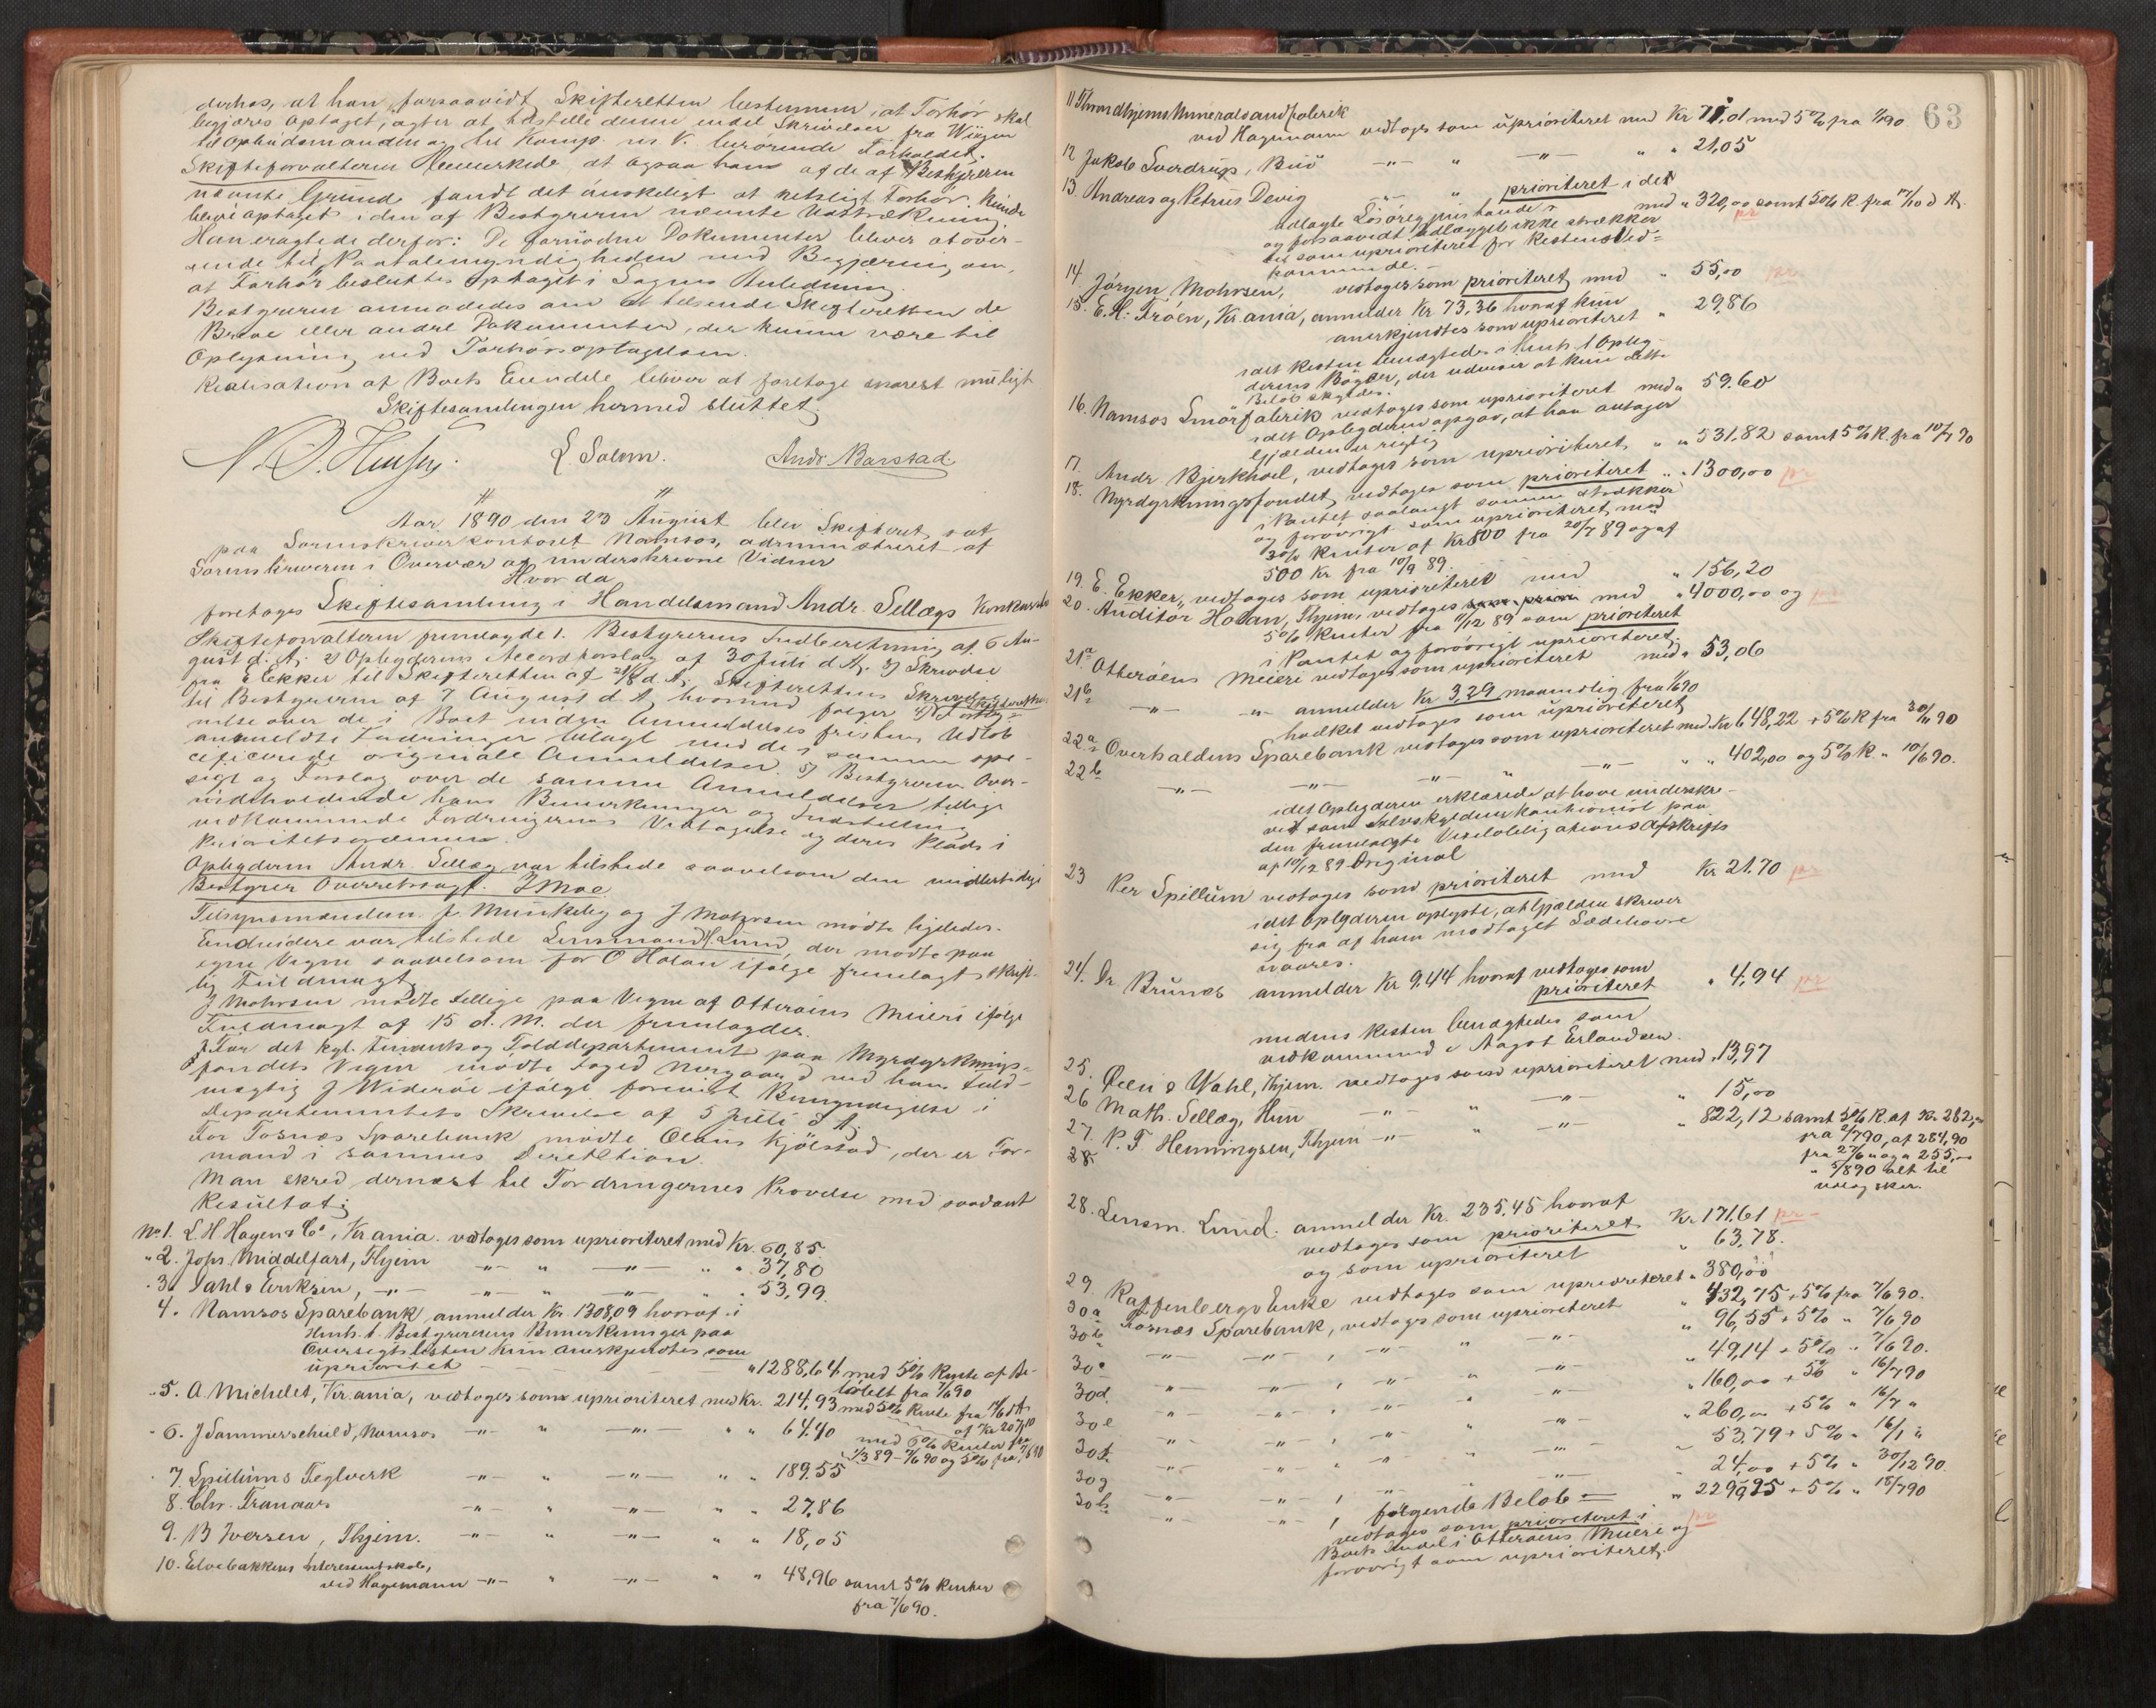 derhos, at han, forsaavidt Skifteretten bestemmer, at Forhör skal
begjæres optaget, agter at tilstille denne endel Skrivelser fra
til Opbudsmanden og til Komp. vedr. berörende Forholdet.
Skifteforvalteren bemerkede, at ogsaa han af de af Bestyreren
nævnte Grunde fandt det önskeligt at retsligt Forhör kunde
blive optaget i den af Bestyreren nævnte Udstrækning
Han eragtede derfor: De fornödne Dokumenter bliver at over-
sende til Paatalemyndigheden med Begjæring om,
at Forhör besluttes optaget i Sagens Anledning.
Bestyreren anmodedes om at tilsende Skifteretten de
Breve eller andre Dokumenter, der kunne være til
Oplysning ved Forhörsoptagelsen.
Realisation af Boets Eiendele bliver at foretage snarest muligt
Skiftesamlingen hermed sluttet
L Salem. Andr Barstad
Aar 1890 den 23 August blev Skifteret sat
paa Sorenskriverkontoret Namsos, administreret af
Sorenskriveren i Overvær af underskrevne Vidner
Hvor da
foretoges Skiftesamling i Handelsmand Andr. Sellægs Konkursbo
Skifteforvalteren fremlagde 1. Bestyrerens Indberetning af 6 Au-
gust d. A. 2) Opbyderens Accordforslag af 30 Juli d A. 3) Skrivelse
fra E Ekker til Skifteretten af d. A. Skifterettens Skrivelse
til Bestyreren af 7 August d. A, hvormed fölger 4) Skifterettens Forteg-
nelse over de i Boet inden Anmeldelses fristens Udlöb
anmeldte Fordringer bilagt med de samme spe-
cificerede originale Anmeldelser. 5) Bestyrerens Over-
sigt og Forslag over de samme Anmeldelser tillige
indeholdende hans Bemerkninger og Indstilling
vedkommende Fordringernes Vedtagelse og deres Plads i
Prioritetsordenen.
Opbyderen Andr. Sellæg var tilstede saavelsom den midlertidige
Bestyrer Overretssagf. J Moe
Tilsynsmændene P. Munkeby og J Mohrsen mödte ligeledes.
Endvidere var tilstede Lensmand Lund, der mödte paa
egne Vegne saavelsom for O Holan ifölge fremlagt skrift-
lig Fuldmagt
J Mohrsen mödte tillige paa Vegne af Otteröens Meieri ifölge
Fuldmagt af 15 d. M. der fremlagdes.
For det kgl. Finants og Tolddepartement paa Myrdyrknings-
fondets Vegne mödte Foged Norgaard ved hans Fuld-
mægtig J Wideröe ifölge forevist Bemyndigelse i
Departementets Skrivelse af 5 Juli d A.
For Fosnæs Sparebank mödte Olaus Kjölstad, der er For-
mand i sammes Direktion.
Man skred dernæst til Fordringernes Prövelse med saadant
Resultat:
No 1. L. H Hagen & Co, Kr.ania. vedtoges som uprioriteret med Kr. 60,85.
" 2. Johs Middelfart, Thjem —"— " —"— " " 37,80
" 3. Dahl & Eriksen, —"— —"— " —"— " " 53,99.
4. Namsos Sparebank anmelder Kr. 1308,09 hvoraf i
Henh. t. Bestyrerens Bemerkninger paa
Oversigtslisten kun anerkjendtes som
uprioritet " 1288,64 med 5% Rente af Be-
löbet fra 7/6 90
" 5. A Michelet, Kr.ania, vedtoges som uprioriteret med Kr. 214,93 med 5% Rente fra 7/6 d A
af Kr 207,10
" 6. J Sommerschild, Namsos —"— " —"— " " 64.40 med 6% Renter fra
1/3 89 - 7/6 90 og 5% fra 7/6 90
" 7. Spillums Teglverk —"— " —"— " " 189.55
8. Chr. Tranaas —"— " —"— " " 27,86
9. B Iversen, Thjem. —"— " —"— " " 18,05
10. Elvebakkens Interessentskab,
ved Hagemann —"— " —"— " " 48,96 samt 5% Renter
fra 7/6 90.
63
11 Throndhjems Mineralvandfabrik
ved Hagemann vedtoges som uprioriteret med Kr 71,01 med 5% fra 7/6 90
12 Jakob Sverdrup, Buö —"— " —"— " " 21,05
13 Andreas og Petrus Devig —"— " prioriteret i det
udlagte Lösöre med " 320,00 samt 5% R. fra 17/10 d A.
og forsaavidt Udlægget ikke strækker pr
til som uprioriteret for Restens Ved-
kommende.
14. Jörgen Mohrsen, vedtoges som prioriteret med " 55,00 pr
15. E. A. Fröen, Kr.ania, anmelder Kr 73,36 hvoraf kun
anerkjendtes som uprioriteret " 29,86
idet Resten benægtedes i Henh. t Opby-
derens Böger, der udviser at kun dette
Belöb skyldes.
16. Namsos Smörfabrik vedtoges som uprioriteret med " 59.60
idet Opbyderen opgav, at han antager
Gjælden er rigtig
17. Andr Bjerkhoel, vedtoges som uprioriteret " " 531.82 samt 5% R. fra 10/7 90
18. Myrdyrkningsfondet vedtoges som prioriteret " " 1300,00 pr
i Pantet saalangt samme strækker
og forövrigt som uprioriteret med
3% Renter af Kr 800 fra 20/7 89 og af
500 Kr fra 10/9 89.
19. E. Ekker, vedtoges som uprioriteret med " 156,20
20. Auditör Holan, Thjem, vedtoges med " 4000,00 og pr
5% Renter fra 11/12 89 som prioriteret
i Pantet og forövrigt uprioriteret.
21a Otteröens Meieri vedtoges som uprioriteret med " 53,06
21b —"— —"— anmelder Kr 3,29 maanedlig fra 1/6 90
hvilket vedtoges som uprioriteret
22a Overhaldens Sparebank vedtoges som uprioriteret med Kr 648,22 + 5% R fra 30/11 90
22b —"— —"— —"— " —"— " " 402,00 og 5% R " 10/6 90.
idet Opbyderen erklærede at have underskre-
vet som Selvskyldnerkautionist paa
den fremlagte Vexelobligations Afskrifts
af 10/12 89 Original
23 Per Spillum vedtoges som prioriteret med Kr 21.70 pr
idet Opbyderen oplyste, at Gjælden skriver
sig fra af ham modtaget Sædehavre
iaares.
24. Dr Brunæs anmelder Kr 9.44 hvoraf vedtoges som
prioriteret " 4,94 pr
medens Resten benægtedes som
vedkommende Aagot Erlandsen.
25. Öien & Wahl, Thjem. vedtoges som uprioriteret med " 13,97
26 Math. Sellæg, Hun —"— " —"— " 15,00
27. P. F Henningsen, Thjem —"— " —"— " 822,12 samt 5% R. af Kr 282,00
28 fra 2/7 90, af 284,90
fra 27/6 og 255,00
" 5/8 90 alt til
Udlæg sker.
28. Lensm. Lund. anmelder Kr. 235.45 hvoraf
vedtoges som prioriteret Kr 171.61 pr
og som uprioriteret " 63,78.
29. Raffenbergs Enke vedtoges som uprioriteret " 380,00
30a Fosnæs Sparebank, vedtoges som uprioriteret " 432,75 + 5% fra 7/6 90.
30b —"— —"—, —"— " —"— " 96,55 + 5% " 7/6 90
30c —"— —"—, —"— " —"— " 49,14 + 5% " 7/6 90.
30d. —"— —"—, —"— " —"— " 160,00 + 5% " 16/7 90
30e —"— —"—, —"— " —"— " 260,00 + 5% " 16/7 "
30f. —"— —"—, —"— " —"— " 53,79 + 5% " 16/1 "
30g —"— —"—, —"— " —"— " 24,00 + 5% " 30/12 90.
30h —"— —"—, fölgende Belöb — " 2299,25 + 5% " 18/7 90
vedtoges som prioriteret i pr
Boets Andel i Otteröens Meieri og
forövrigt som uprioriteret.